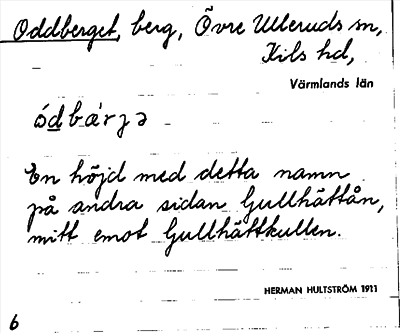 Oddberget, berg, Övre Ulleruds sn,
Kils hd,
Värmlands län
ó̱dbàrʒə
En höjd med detta namn
på andra sidan Gullhättån,
mitt emot Gullhättkullen.
HERMAN HULTSTRÖM 1921
6